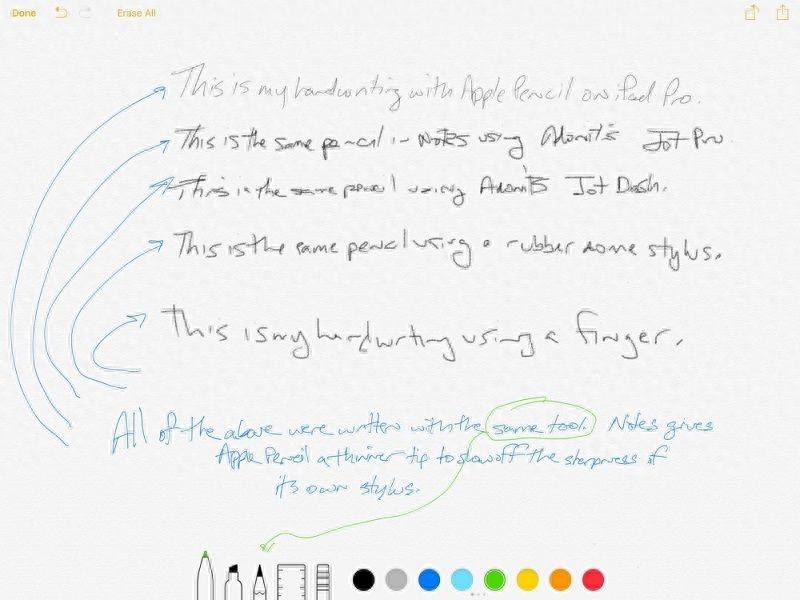 Done Erase All
This is my handwriting with Apple Pencil on iPad Pro.
This is the same pencil in Notes using Adonit's Jot Pro
This is the same pencil using Adonit's Jot Dash.
This is the same pencil using a rubber dome stylus.
This is my handwriting using a finger.
All of the above were written with the same tool. Notes gives
Apple Pencil a thinner tip to show off the sharpness of
its own stylus.